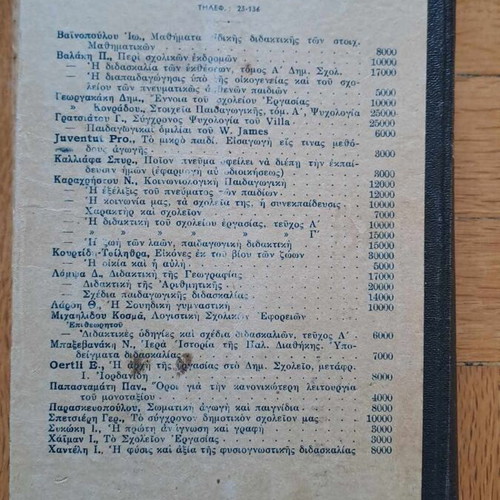 ΤΗΛΕΦ. : 25-136
Βαϊνοπούλου Ἰω., Μαθήματα εἰδικῆς διδακτικῆς τῶν στοιχ.
Μαθηματικῶν 8000
Βαλάκη Π., Περὶ σχολικῶν ἐκδρομῶν 10000
— Ἡ διδασκαλία τῶν ἐκθέσεων, τόμος Α΄ Δημ. Σχολ. 17000
— Ἡ διαπαιδαγώγησις ὑπὸ τῆς οἰκογενείας καὶ τοῦ σχο-
λείου τῶν πνευματικῶς ἀσθενῶν παιδιῶν 5000
Γεωργακάκη Δημ., Ἔννοια τοῦ σχολείου Ἐργασίας 10000
» Κονράδου, Στοιχεῖα Παιδαγωγικῆς, τόμ. Α΄, Ψυχολογία 25000
Γρατσιάτου Γ., Σύγχρονος Ψυχολογία τοῦ Villa 25000
— Παιδαγωγικαὶ ὁμιλίαι τοῦ W. James 6000
Juventui Pro., Τὸ μικρὸ παιδί. Εἰσαγωγὴ εἰς τινας μεθό-
δους ἀγωγῆς 3000
Καλλιάφα Σπυρ., Ποῖον πνεῦμα ὀφείλει νὰ διέπῃ τὴν ἐκπαί-
δευσιν ἡμῶν (ἐφαρμογὴ αὐτοδιοικήσεως) 3000
Καραχρήστου Ν., Κοινωνιολογικὴ Παιδαγωγικὴ 12000
— Ἡ ἐξέλιξις τοῦ πνεύματος τῶν παιδίων 12000
— Ἡ κοινωνία μας, τὰ σχολεῖα της, ἡ συνεκπαίδευσις 10000
— Χαρακτὴρ καὶ σχολεῖον 7000
— Ἡ διδακτικὴ τοῦ σχολείου ἐργασίας, τεῦχος Α΄ 10000
— » » » » » Γ΄ 15000
— Ἡ ζωὴ τῶν λαῶν, παιδαγωγικὴ διδακτικὴ 15000
Κουρτίδη-Τσίληθρα, Εἰκόνες ἐκ τοῦ βίου τῶν ζώων 30000
— Ἡ οἰκία καὶ ἡ αὐλὴ 5000
Λάμψα Δ., Διδακτικὴ τῆς Γεωγραφίας 17000
— Διδακτικὴ τῆς Ἀριθμητικῆς 20000
— Σχέδια παιδαγωγικῆς διδασκαλίας 14000
Λάρση Θ., Ἡ Σουηδικὴ γυμναστικὴ 10000
Μιχαηλίδου Κοσμᾶ, Λογιστικὴ Σχολικῶν Ἐφορειῶν
Ἐπιθεωρητοῦ
—Διδακτικὲς ὁδηγίες καὶ σχέδια διδασκαλιῶν, τεῦχος Α΄ 6000
Μπαξεβανάκη Ν., Ἱερὰ Ἱστορία τῆς Παλ. Διαθήκης. Ὑπο-
δείγματα διδασκαλίας 7000
Oertli E., Ἡ ἀρχὴ τῆς ἐργασίας στὸ Δημ. Σχολεῖο, μετάφρ.
Ἰ. Ἰορδανίδη 8000
Παπασταμάτη Παν., Ὅροι γιὰ τὴν κανονικώτερη λειτουργία
τοῦ μονοταξίου 4000
Παρασκευοπούλου, Σωματικὴ ἀγωγὴ καὶ παιγνίδια 8000
Σπετσιέρη Γερ., Τὸ σύγχρονον δημοτικὸν σχολεῖον μας 10000
Συκώκη Ι., Ἡ πρώτη ἀνάγνωση καὶ γραφὴ 3000
Χάϊμαν Ι., Τὸ Σχολεῖον Ἐργασίας 3000
Χαντέλη Ι., Ἡ φύσις καὶ ἀξία τῆς φυσιογνωστικῆς διδασκαλίας 8000